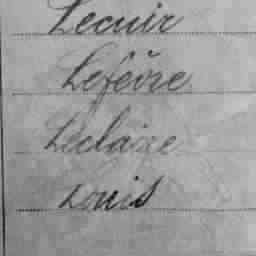 Lecuir
Lefèvre
Leclaire
Louis